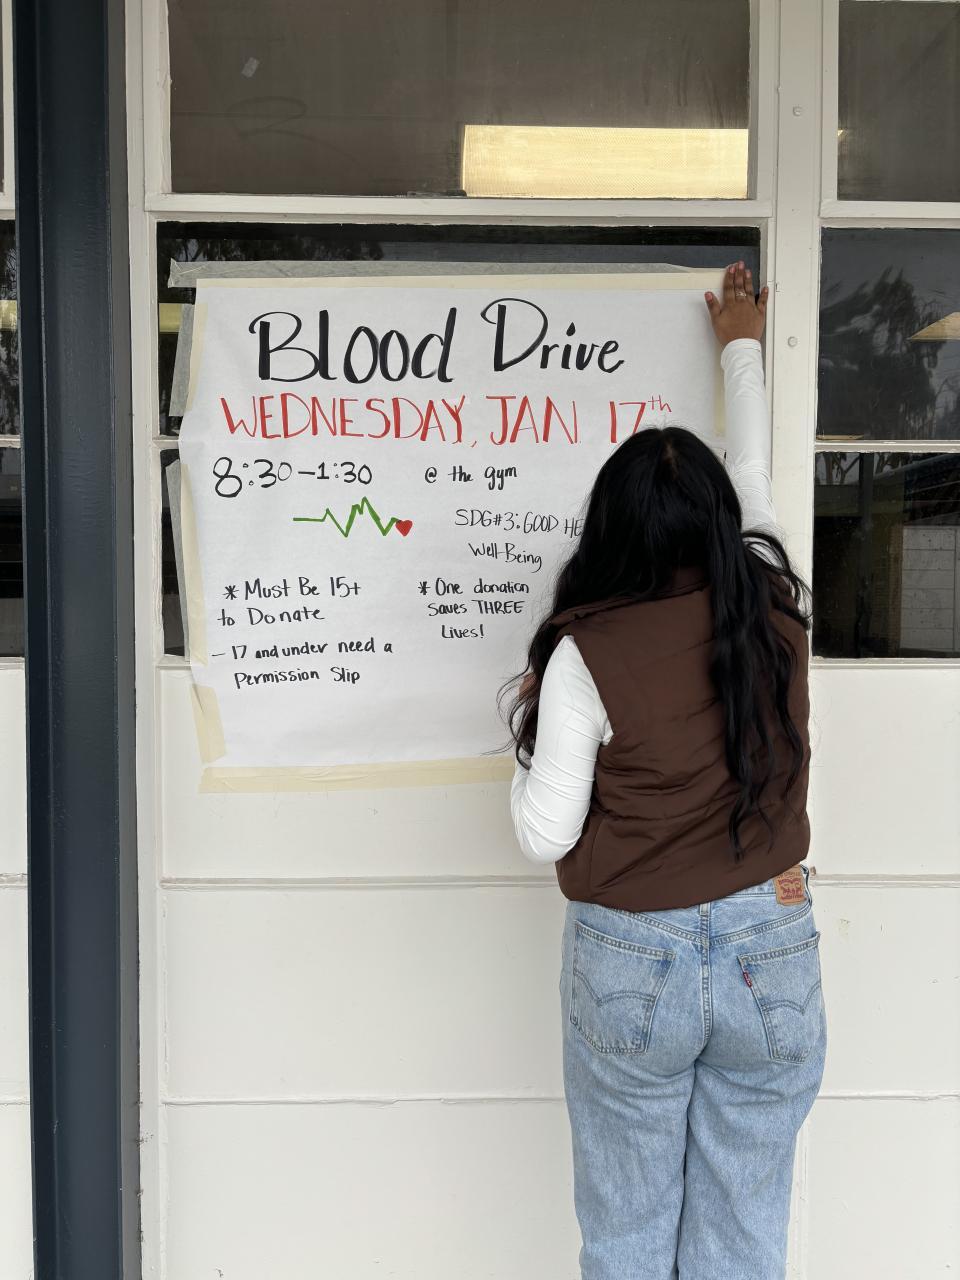 Blood Drive
WEDNESDAY, JAN 17th
8:30-1:30 @ the gym
SDG#3: GOOD
Well-Being
* Must Be 15+
to Donate
- 17 and under need a
Permission Slip
* One donation
saves THREE
Lives!